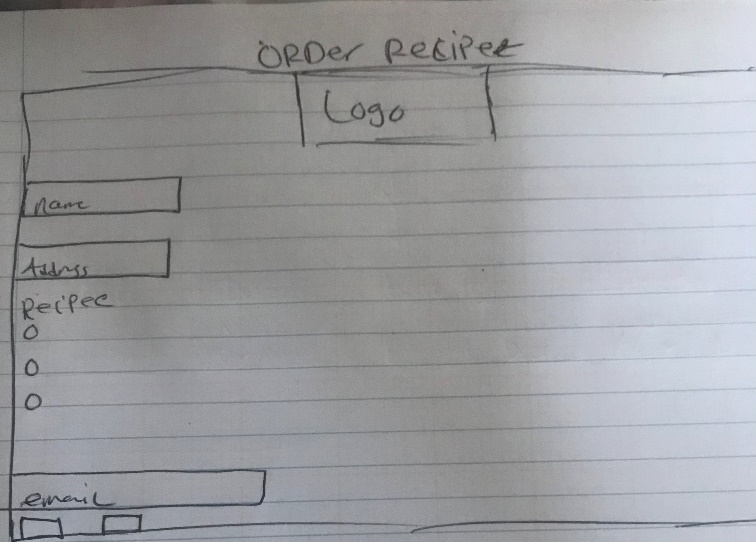 ORDer Recipee
Logo
name
Address
Recipee
email